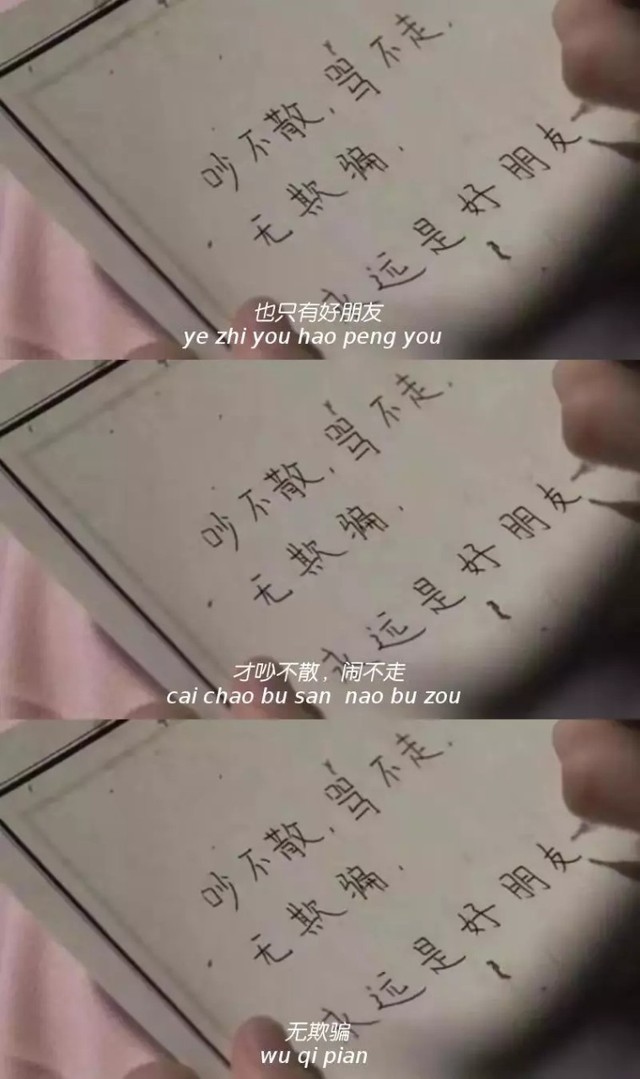 吵不散,骂不走.
无欺骗.
永远是好朋友
也只有好朋友
ye zhi you hao peng you
吵不散,骂不走.
无欺骗.
永远是好朋友
才吵不散，闹不走
cai chao bu san nao bu zou
吵不散,骂不走.
无欺骗.
永远是好朋友
无欺骗
wu qi pian